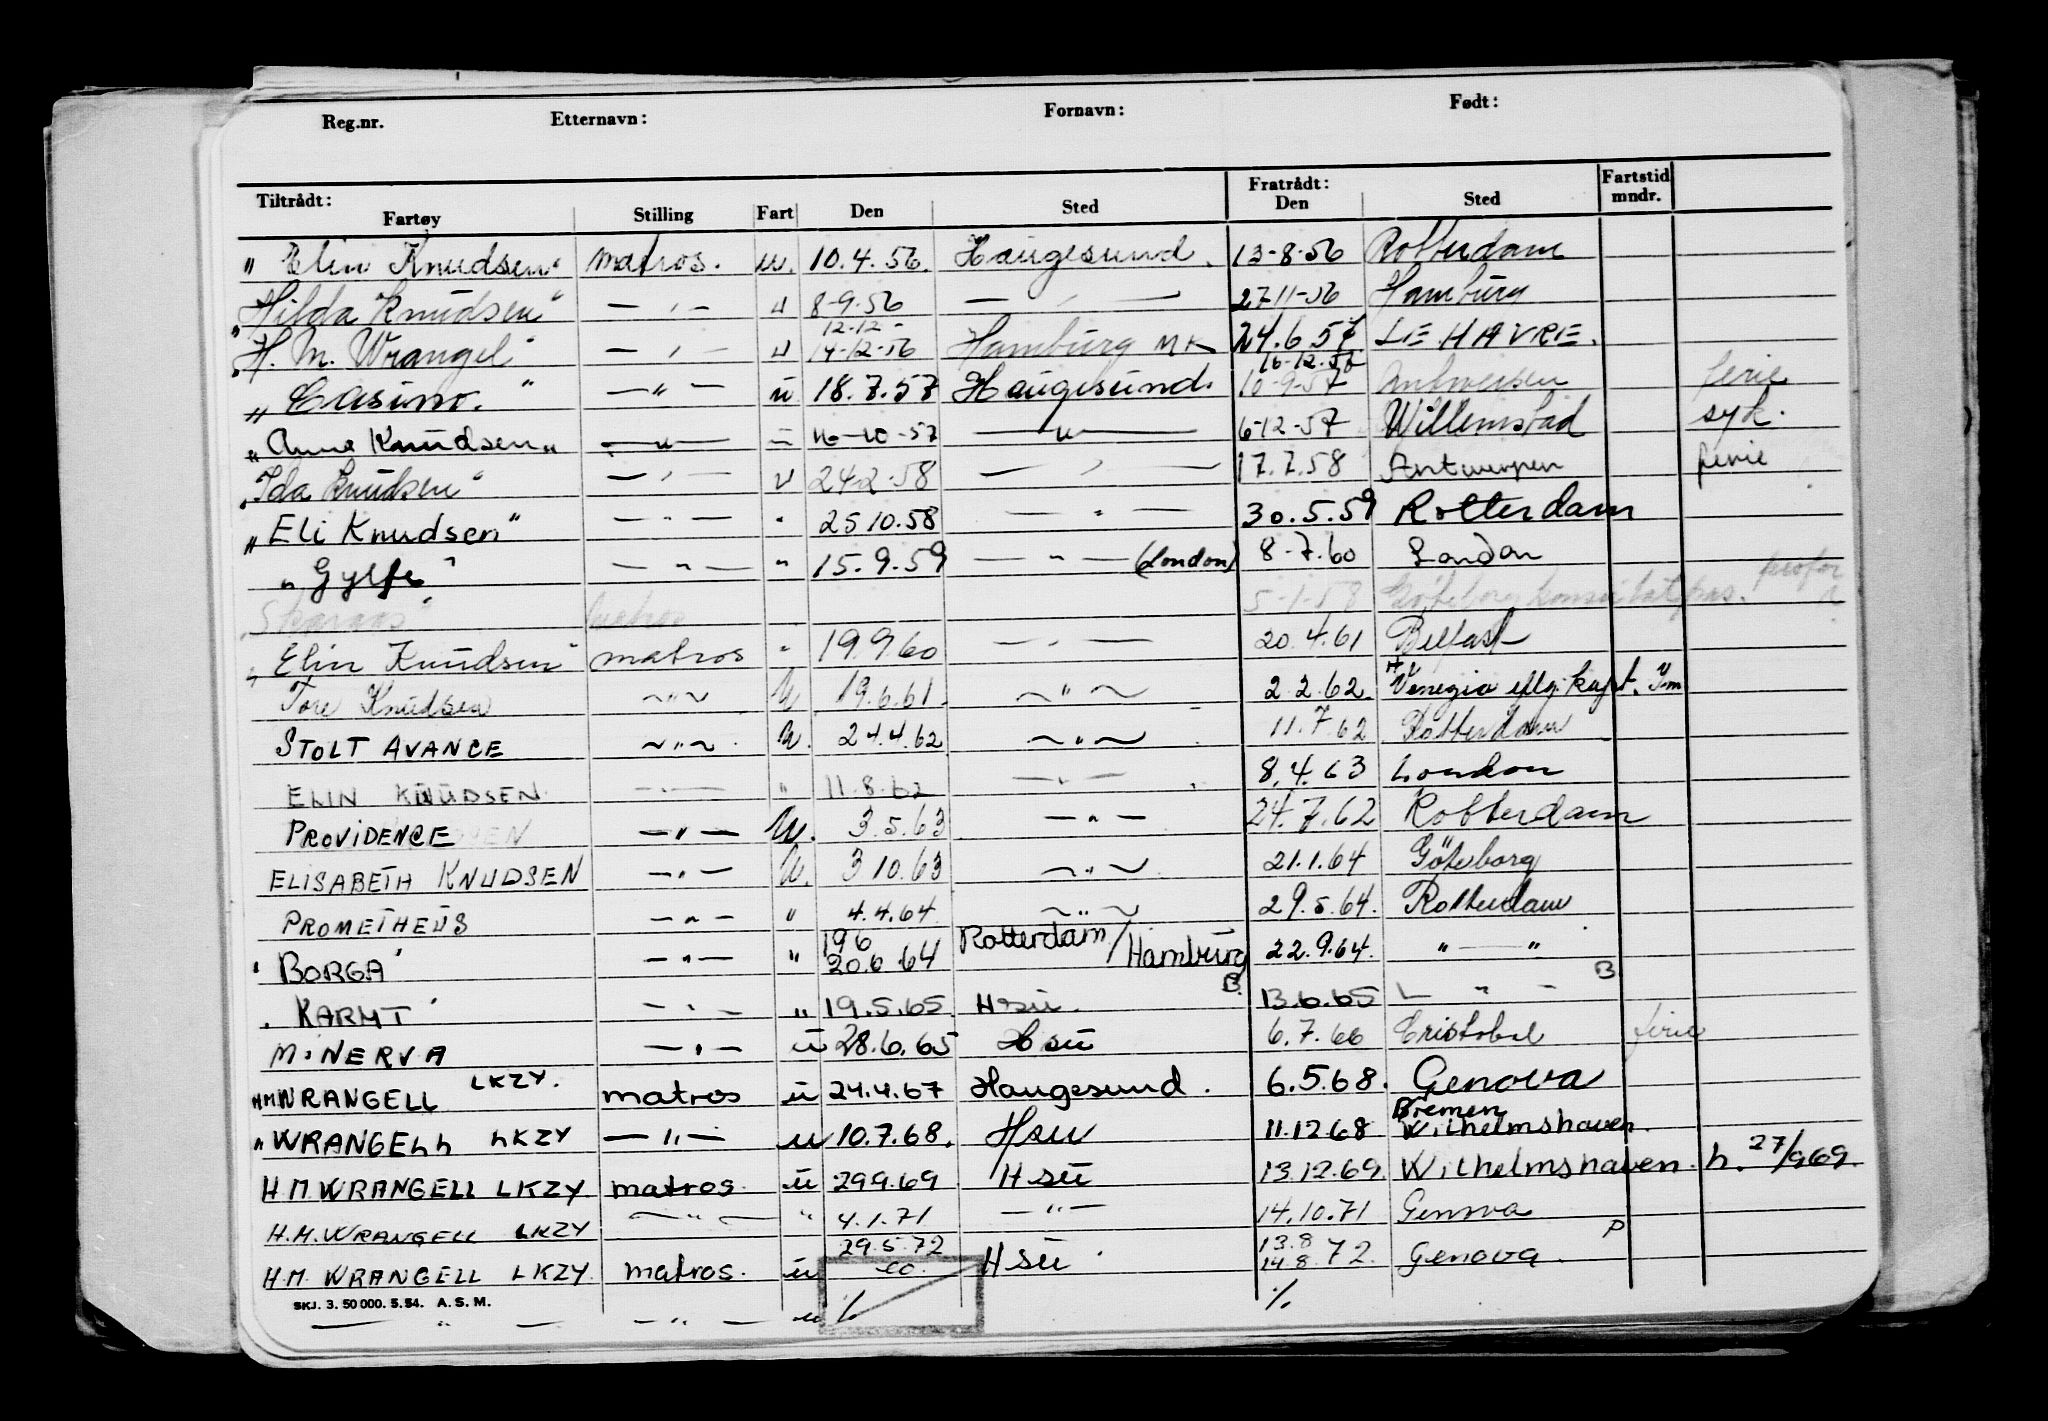 Reg.nr. Etternavn: Fornavn: Født:
Tiltrådt: Fratrådt: Fartstid
Fartøy Stilling Fart Den Sted Den Sted mndr.
" Elin Knudsen" matros. u. 10.4.56. Haugesund. 13-8-56 Rotterdam
"Hilda Knudsen" — " — u 8-9-56 — " — 27-11-56 Hamburg
12-12-
"H. M. Wrangel" — " — u 14-12-56 Hamburg MK 24.6.57 LE HAVRE.
16-12-56
" Casino. " — " — u 18.7.57 Haugesund. 10-9-57 Antwerpen ferie
" Anna Knudsen " — " — 16-10-57 — " — 6-12-57 Willemstad syk.
"Ida Knudsen" — " — u 24-2-58 — " — 17.7.58 Antwerpen ferie
"Eli Knudsen" — " — " 25.10.58 — " — 30.5.59 Rotterdam
"Gylfe" — " — " 15.9.59 — " — (London) 8-7.60 London
matros 5-1-58 Göteborg
" Elin Knudsen" matros " 19.9.60 — " — 20.4.61 Belfast
Tore Knudsen ~ " ~ U 19.6.61. ~ " ~ 2.2.62. Venezia kapt.
STOLT AVANCE ~ " ~ U. 24.4.62 ~ " ~ 11.7.62 Rotterdam
ELIN KNUDSEN — " — " 11.8.62 — " — 8.4.63 London
PROVIDENCE — " — U. 3.5.63 — " — 24.7.62 Rotterdam
ELISABETH KNUDSEN — " — U. 3.10.63 ~ " ~ 21.1.64 Göteborg
PROMETHEUS — " — " 4.4.64. ~ " ~ 29.5.64. Rotterdam
" BORGA " — " — " 19 6 20.6.64 Rotterdam / Hamburg 22.9.64. " — "
B. B
" KARMT " — " — " 19.5.65 Hsu. 13.6.65 — " —
MINERVA — " — u 28.6.65 Hsu 6.7.66 Cristobal ferie
HM WRANGELL LKZY. matros u 24.4.67 Haugesund. 6.5.68. Genova
Bremen
" WRANGELL LKZY — " — u 10.7.68. Hsu 11.12.68 Wilhelmshaven.
H.M. WRANGELL LKZY. matros. u 29.9.69 Hsu 13.12.69. Wilhelmshaven. h. 27/969.
H.M. WRANGELL LKZY — " — " 4.1.71 — " — 14.10.71 Genova
29.5.72 13.8 P
H.M. WRANGELL LKZY. matros. u Hsu 14.8.72. Genova.
SKJ. 3. 50 000. 5. 54. A. S. M.
— " — — " — u % %